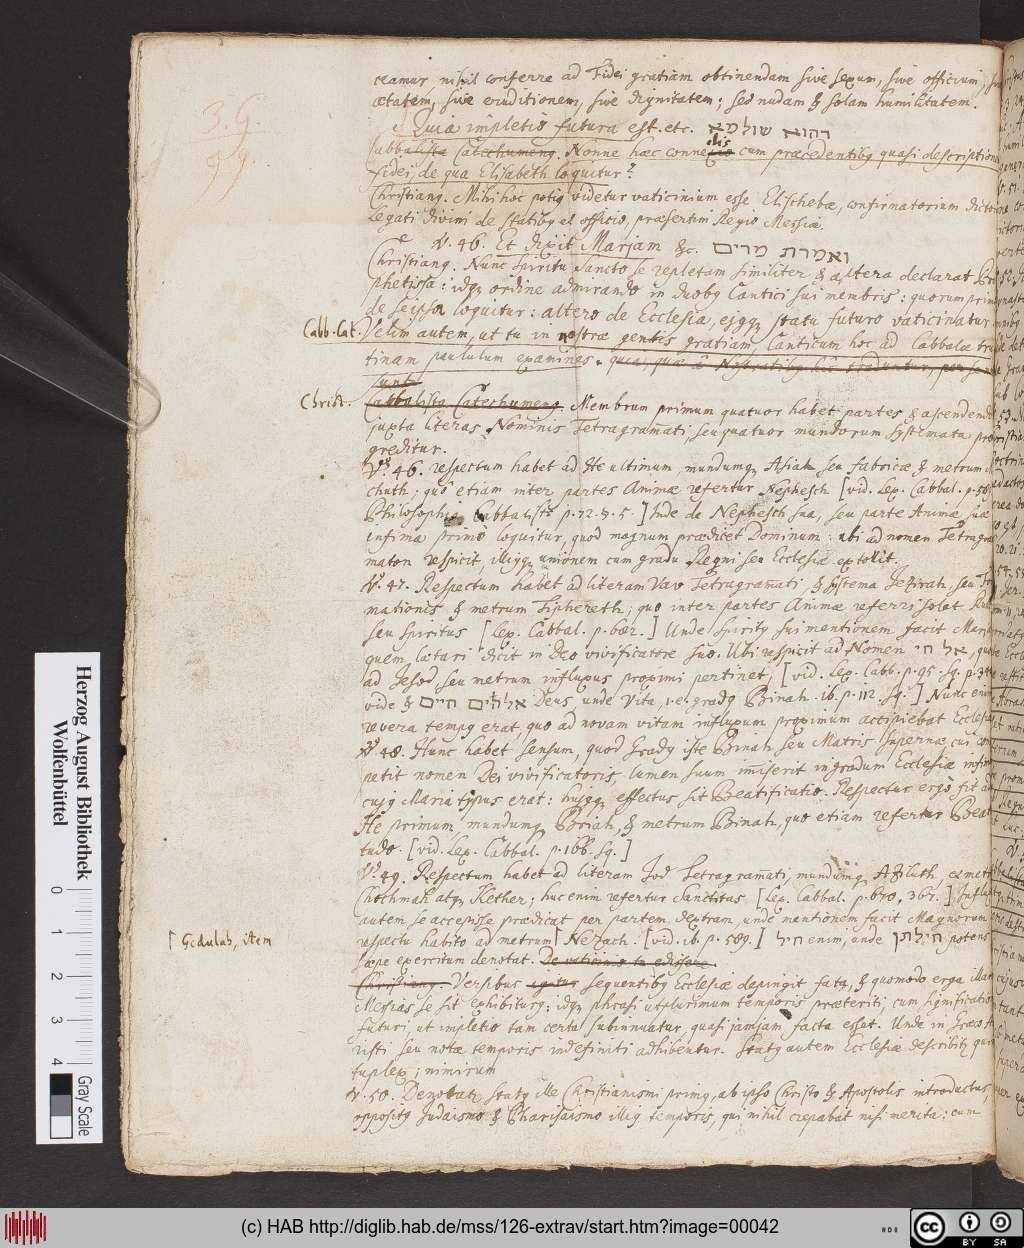 3. G.
99.
ceamur, nihil conferre ad Fidei gratiam obtinendam sive sexum, sive officium, sive
ætatem, sive eruditionem, sive dignitatem; sed nudam & solam humilitatem.
Quia impletio futura est. etc. דהוא שולמא
Cabbalista Catechumeng. Nonne hæc connexio elis cum præcedentibg quasi descriptionem
Fidei, de qua Elisabeth loquitur?
Christiang. Mihi hoc potig videtur vaticinium esse Elischebæ, confirmatorium dictorum
Legati divini de statibg et officio, præsertim Regio Messiæ.
V. 46. Et dixit Marjam &c. ואמרת מרים
Christiang. Nunc Spiritu Sancto se repletam similiter & altera declarat Pro-
phetissa: idq; ordine admirando in duobg Cantici sui membris: quorum primo
de seipsa loquitur: altero de Ecclesia, ejgq; statu futuro vaticinatur.
Cabb. Cat. Velim autem, ut tu in nostræ gentis gratiam, Canticum hoc ad Cabbalæ tru-
tinam paululum examines.
sunt.
Christ. Cabbalista Catechumeng. Membrum primum quatuor habet partes & ascendendo
juxta literas Nominis Tetragrammati, seu quatuor mundorum systemata pro-
greditur.
V. 46. respectum habet ad He ultimum, mundumq; Asiah seu fabricæ & metrum
chuth; quô etiam inter partes Animæ refertur Nephesch [vid. Lex. Cabbal. p. 589
Philosophia Cabbalist. p. 12. 4. 5.] Inde de Nephesch sua, seu parte Animæ suæ
infima primô loquitur, quod magnum prædicet Dominum: ubi ad nomen Tetragram-
maton respicit, illigq; unionem cum gradu Regni seu Ecclesiæ extollit.
V. 47. Respectum habet ad literam Vav Tetragrammati, & systema Jezirah, seu For-
mationis & metrum Tiphereth; quo inter partes Animæ referri solet Ruach
seu Spiritus [Lex. Cabbal. p. 682.] Unde Spiritg sui mentionem facit Marjam
quem lætari dicit in Deo vivificatore suo. Ubi respicit ad Nomen אל חי, quod
ad Jesod seu metrum influxus proximi pertinet, [vid. Lex. Cabb. p. 95. sq. p.
vide & אלהים חיים Deus, unde Vita, i. e. gradg Binah. ib. p. 112. sq.] Nunc enim
revera tempg erat, quo ad novam vitam influxum proximum accipiebat Ecclesia.
V. 48. Hunc habet sensum, quod Gradg iste Binah, seu Matris supernæ, cui com-
petit nomen Dei vivificatoris, lumen suum immiserit in gradum Ecclesiæ infimum
cujg Maria typus erat: hujgq; effectus sit Beatificatio. Respectus ergô fit ad
He primum, mundumq; Briah, & metrum Binah, quo etiam refertur Beati-
tudo. [vid. Lex. Cabbal. p. 166. sq.]
V. 49. Respectum habet ad literam Jod Tetragrammati, mundumq; Aziluth, et metra
Chochmah atq; Kether; huc enim refertur Sanctitas [Lex. Cabbal. p. 670. 362.] Influxum
autem se accepisse prædicat per partem dextram, unde mentionem facit Magnorum
⌈ Gedulah, item
respectu habito ad metrum⌈ Nezach. [vid. ib. p. 589.] חיל enim, unde חילתן potens
sæpe exercitum denotat. De vaticinio tu edissere.
Christiang. Versibus igitur sequentibg Ecclesiæ depingit fata, & quomodo erga illam
Messias se sit exhibiturg; idq; phrasi utplurimum temporis præteriti, cum significatione
futuri, ut impletio tam certa subinnuatur, quasi jamjam facta esset. Unde in Græco Ao-
risti seu notæ temporis indefiniti adhibentur. Statg autem Ecclesiæ describitur qua-
druplex; nimirum
V. 50. Denotatur statg ille Christianismi primg, ab ipso Christo & Apostolis introductus,
oppositg Judaismo & Pharisaismo illig temporis, qui nihil crepabat nisi merita: cum
Herzog August Bibliothek
Wolfenbüttel
0 1 2 3 4
Gray Scale
(c) HAB http://diglib.hab.de/mss/126-extrav/start.htm?image=00042
cc BY SA